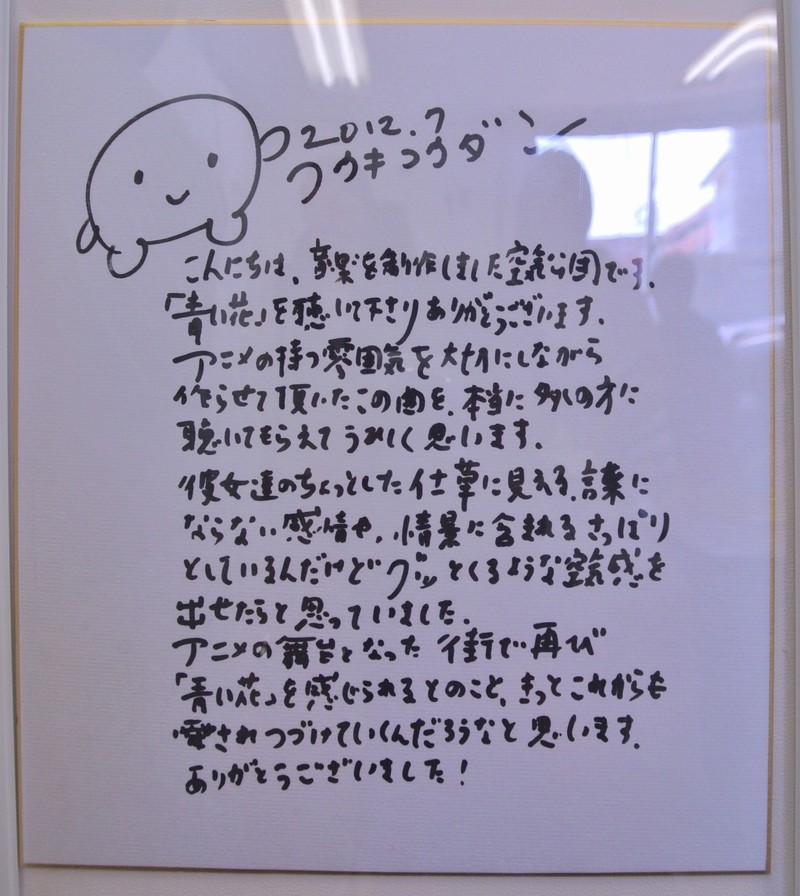 2012.7
クウキコウダン
こんにちは、音楽を制作しました空気公団です。
「青い花」を聴いて下さりありがとうございます。
アニメの持つ雰囲気を大切にしながら
作らせて頂いたこの曲を、本当に多くの方に
聴いてもらえてうれしく思います。
彼女達のちょっとした仕草に見える、言葉に
ならない感情や、情景に含まれるさっぱり
としているんだけどグッとくるような空気感を
出せたらと思っていました。
アニメの舞台となった街で再び
「青い花」を感じられるとのこと、きっとこれからも
愛されつづけていくんだろうなと思います。
ありがとうございました!